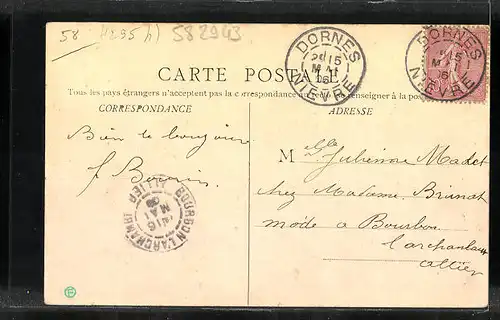 58 4295 h) 582943
DORNES
15
MAI
06
NIÈVRE
DORNES
15
MAI
06
NIÈVRE
CARTE POSTALE
Tous les pays étrangers n'acceptent pas la correspondance au recto. (Se renseigner à la poste)
CORRESPONDANCE
ADRESSE
Bien le bonjour
M elle Julienne Madet
chez Madame Brunat
mode à Bourbon
l'archambault
allier
BOURBON L'ARCHAMBT
16
MAI
06
ALLIER